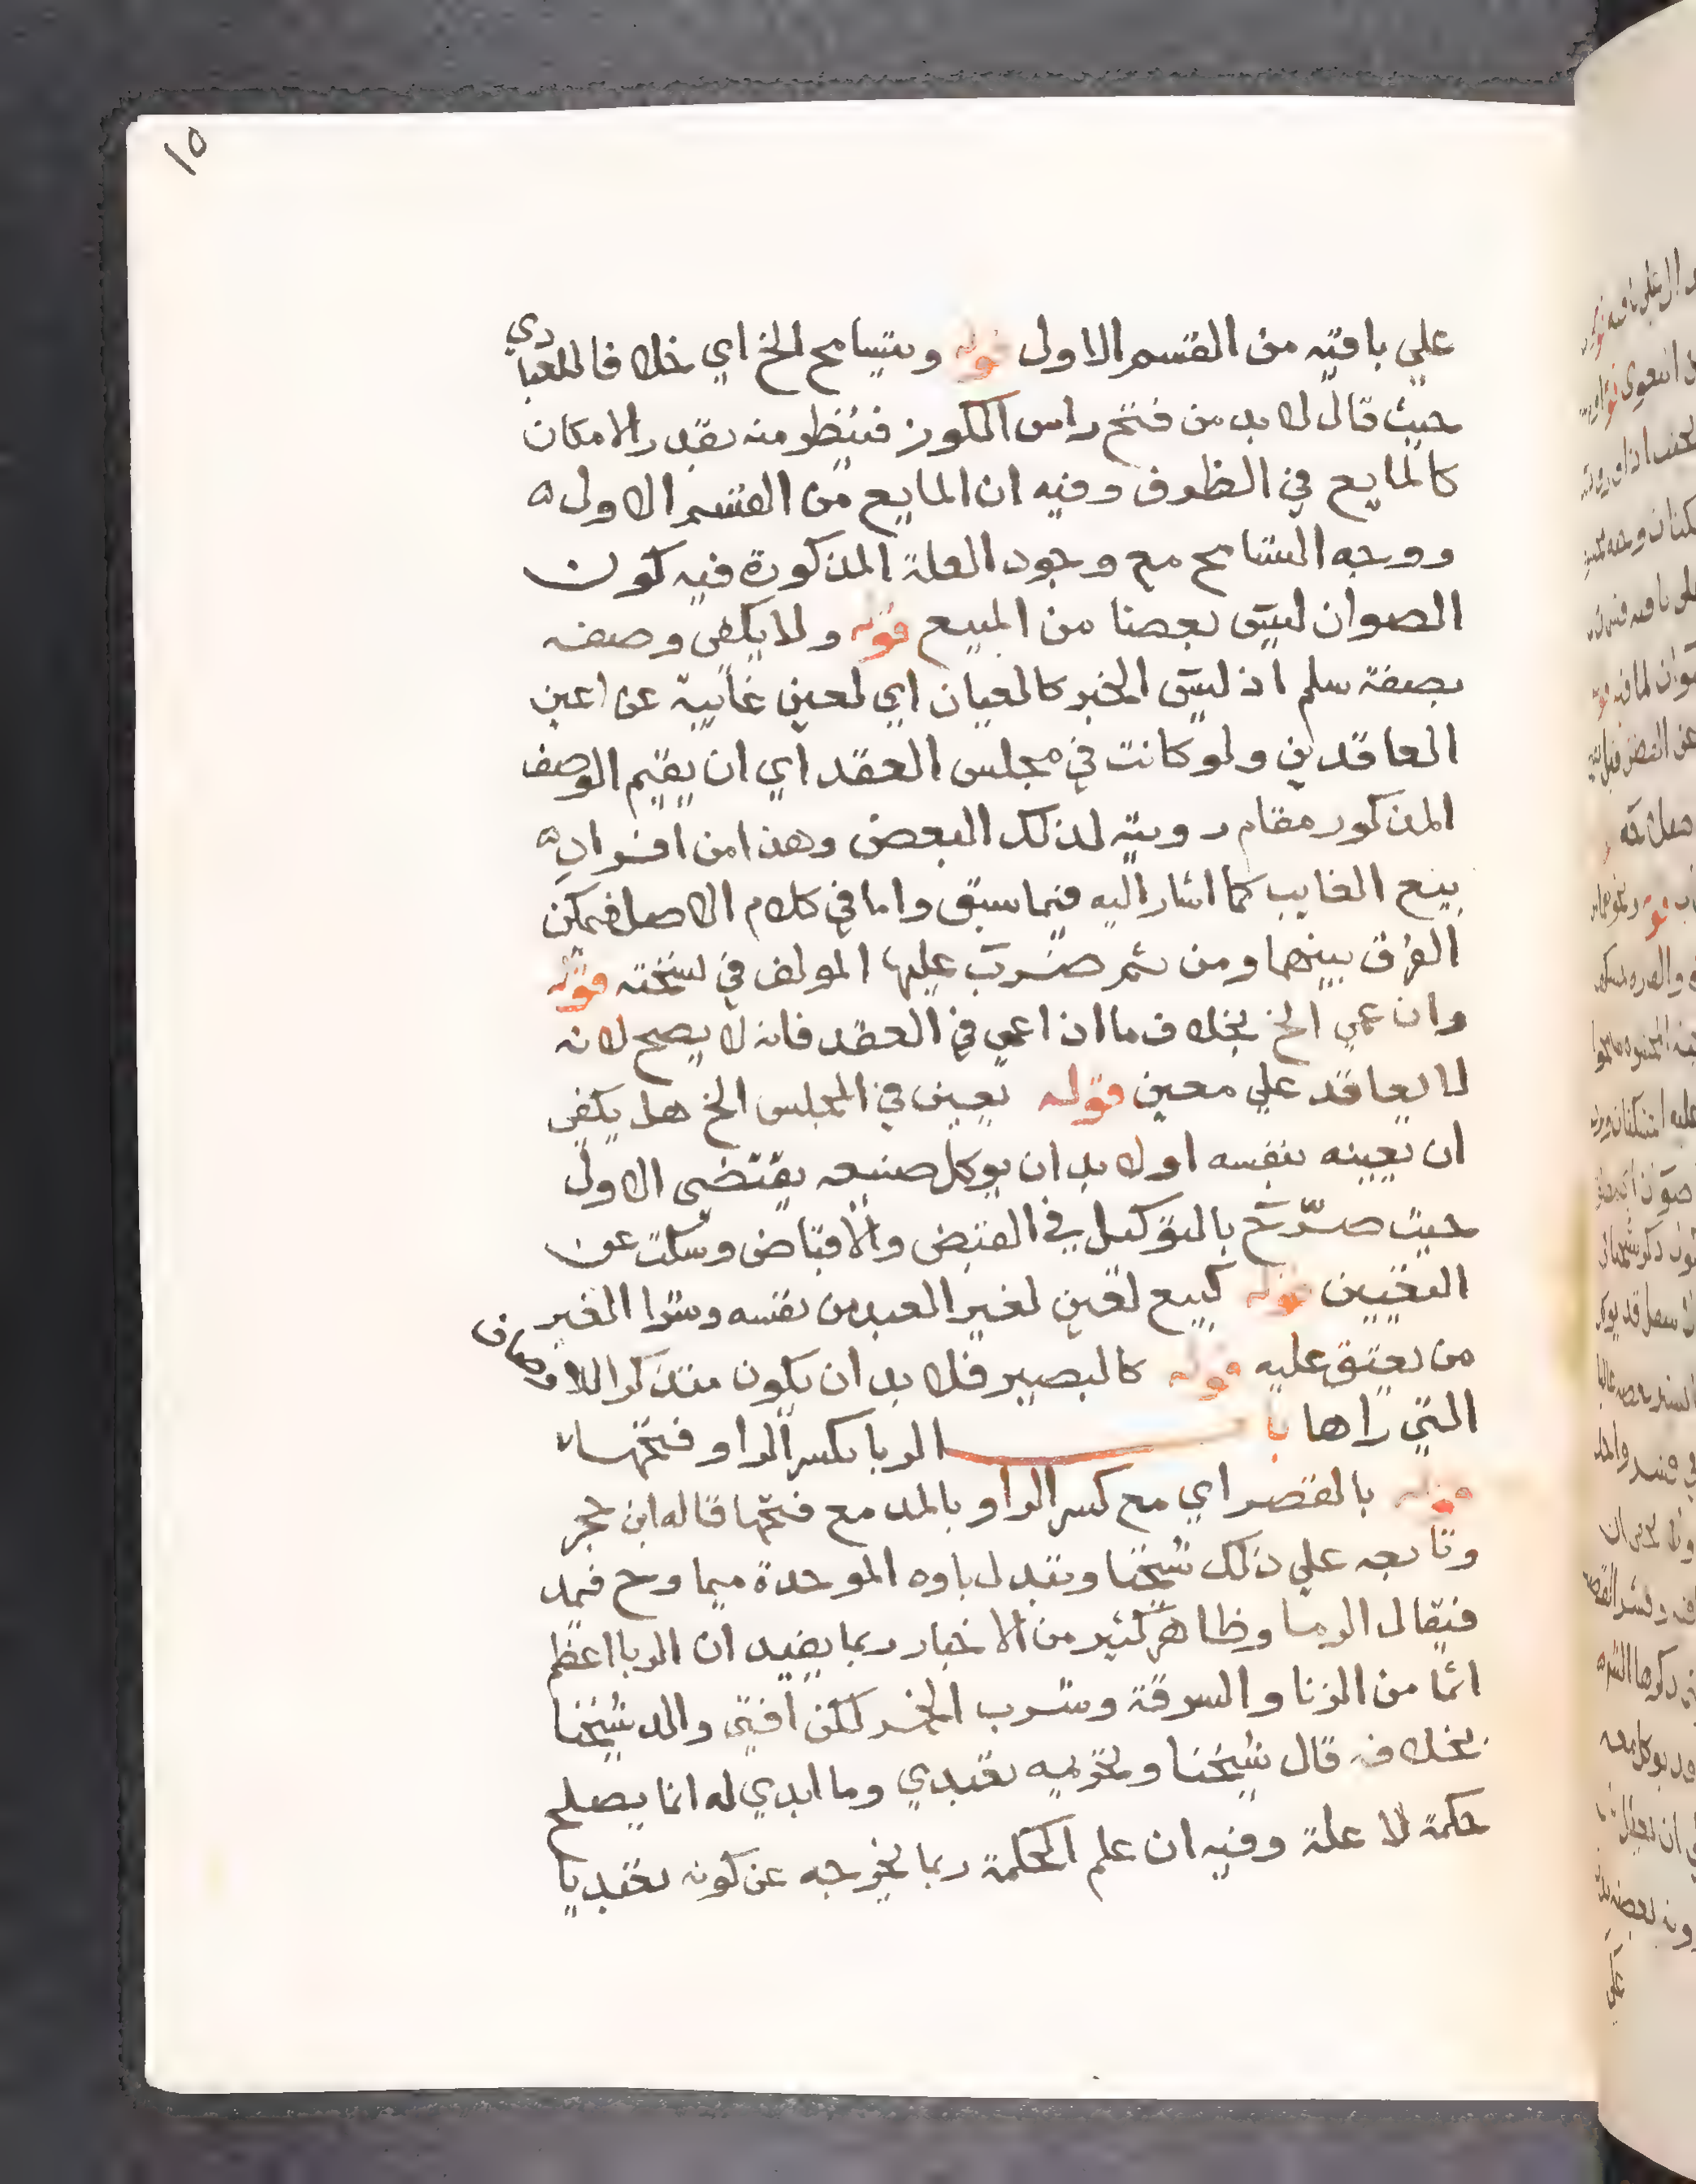 ١٥
علي باقيه من القسم الاول قوله ويتسامح الخ اي خلافا للعبادي
حيث قال لا بد من فتح راس الكوز فينظر منه بقدر الامكان
كالمايع في الظرف وفيه ان المايع من القسم الاول
ووجه التسامح مع وجود العلة المذكورة فيه كون
الصوان ليس بعضا من المبيع قوله ولا يكفي وصفه
بصفة سلم اذ ليس الخبر كالعيان اي لعين غايبة عن اعين
العاقدين ولو كانت في مجلس العقد اي ان يقيم الوصف
المذكور مقام رويته لذلك البعض وهذا من افراد
بيع الغايب كما اشار اليه فيما سبق واما في كلام الاصل فيمكن
الفرق بينهما ومن ثم ضرب عليها المولف في نسخته قوله
وان عمي الخ بخلاف ما اذا عمي في العقد فانه لا يصح لانه
لا يعاقد علي معين قوله تعين في المجلس الخ هل يكفي
ان يعينه بنفسه اولا بد ان يوكل صنيعه يقتضي الاول
حيث صرّح بالتوكيل في القبض والاقباض وسكت عن
التعيين قوله كبيع لعين لغير العبد من نفسه وشرا الغير
من يعتق عليه قوله كالبصير فلا بد ان يكون متذكرا للاوصاف
التي راها باب الربا بكسر الرا وفتحها
قوله بالقصر اي مع كسر الرا وبالمد مع فتحها قاله ابن حجر
وتابعه علي ذلك شيخنا وتبدل باوه الموحدة ميما وح فيمد
فيقال الرما وظاهر كثير من الاخبار ربما يفيد ان الربا اعظم
اثما من الزنا والسرقة وشرب الخمر لكن افتي والد شيخنا
بخلافه قال شيخنا وتحريمه تعبدي وما ابدي له انما يصلح
حكمة لا علة وفيه ان علم الحكمة ربما يخرجه عن كونه تعبديا